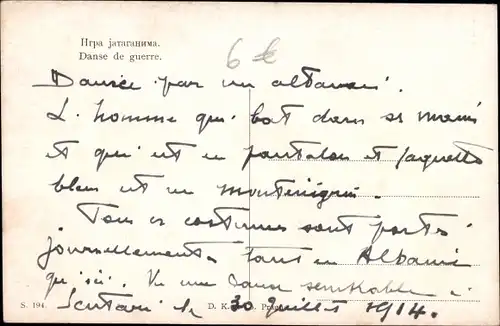 Игра јатаганима.
Danse de guerre.
6 €
Danse par un albanais.
L'homme qui bat dans ses mains
et qui est en pantalon et jaquette
bleu est un monténégrin.
Tous ces costumes sont portés
journellement tant en Albanie
qu'ici. Vu une danse semblable à
Scutari le 30 Juillet 1914.
S. 194. D. K.